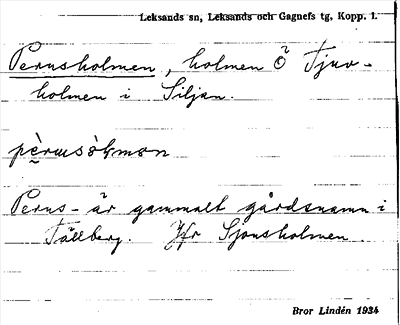 Leksands sn, Leksands och Gagnefs tg, Kopp. l.
Pernsholmen, holmen Ö Tjuv-
holmen i Siljan.
Perns- är gammalt gårdsnamn i
Tällberg. Jfr Sjonsholmen.
Bror Lindén 1934